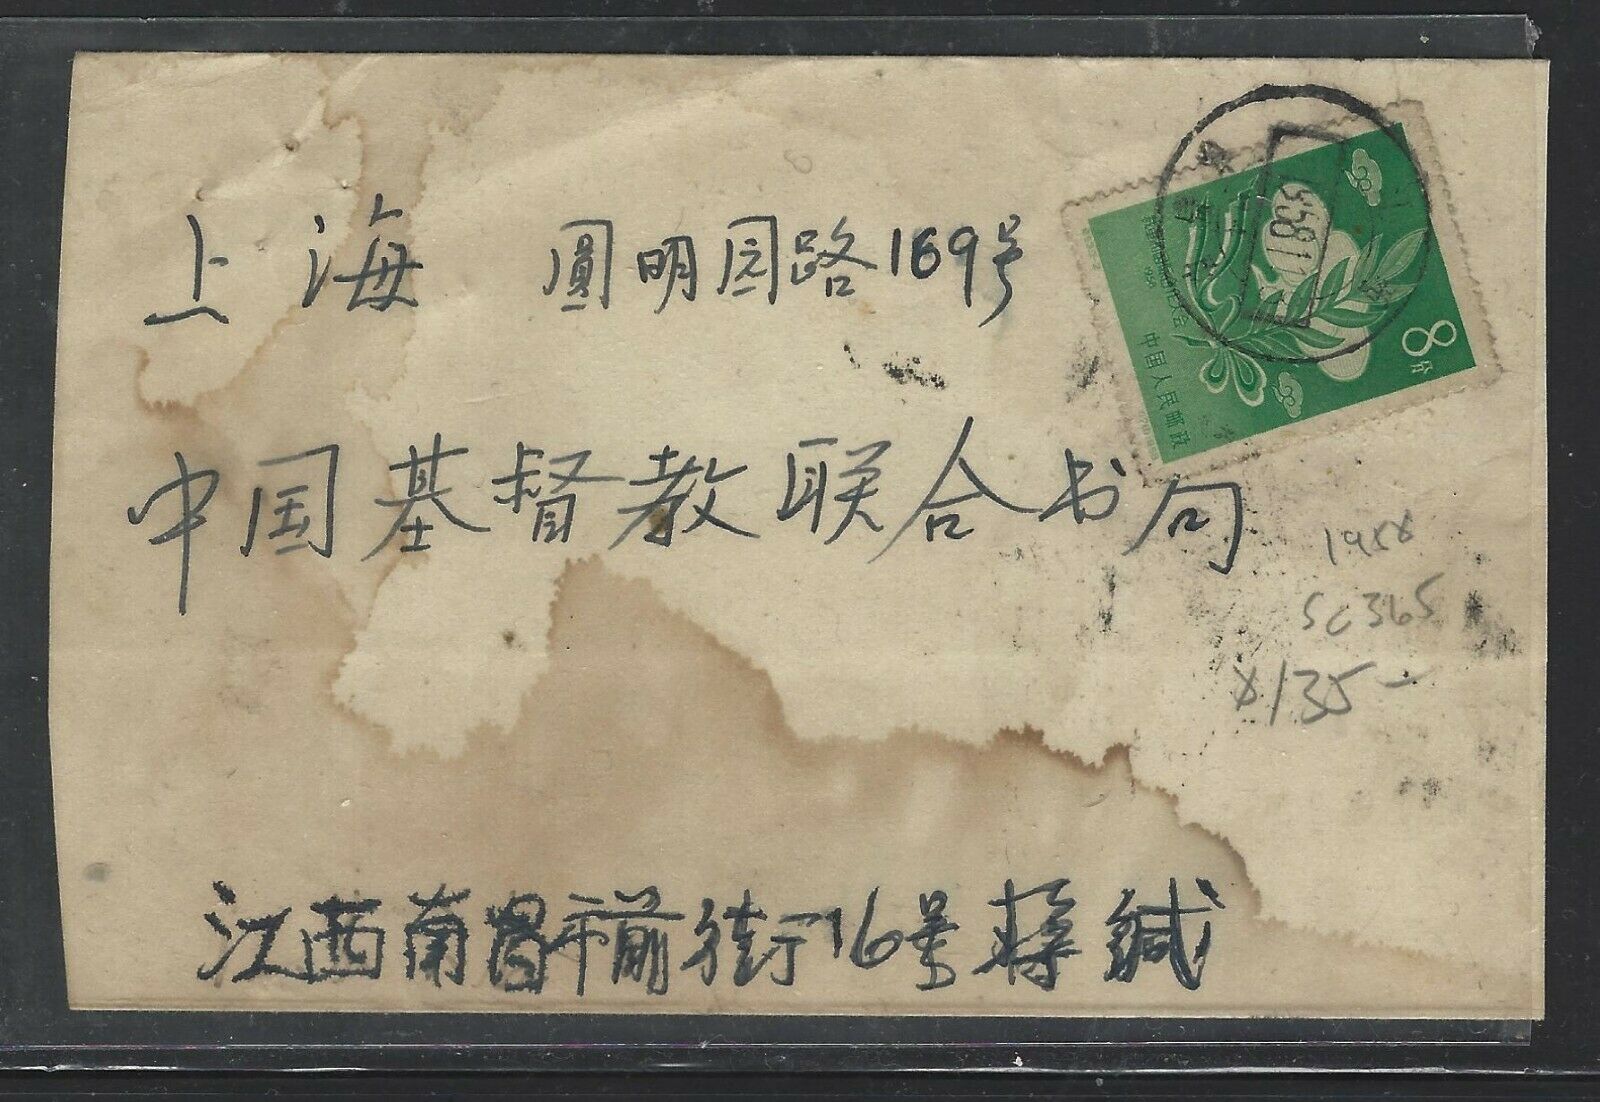 上海 圓明园路169号
中国基督教联合书局
江西南昌市前街76号蒋缄
8分
中国人民邮政
1958
SC365
135-